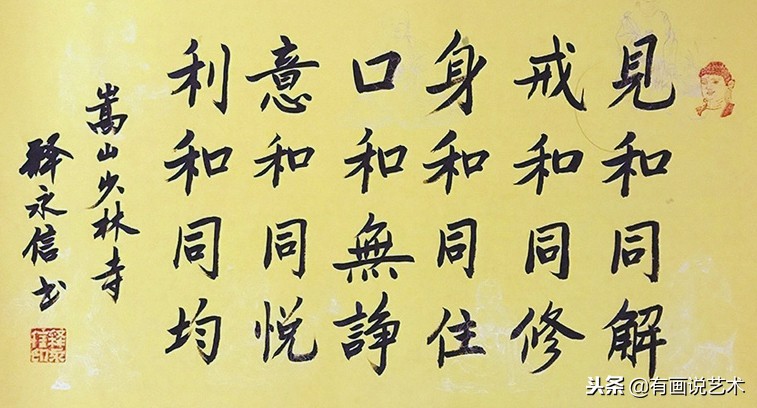 見和同解
戒和同修
身和同住
口和無諍
意和同悦
利和同均
嵩山少林寺
释永信书
头条 @有画说艺术